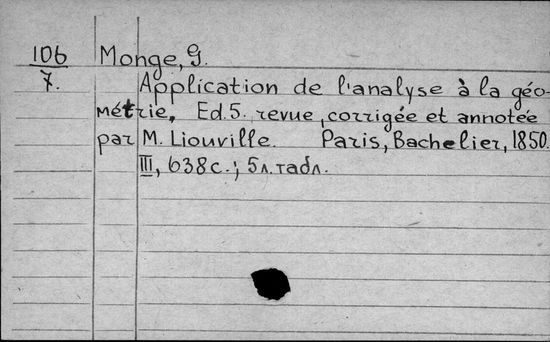 106 Monge, G.
7. Application de l'analyse à la géo-
métrie, Ed. 5. revue, corrigée et annotée
par M. Liouville. Paris, Bachelier, 1850.
III, 638 c.; 5 л. табл.